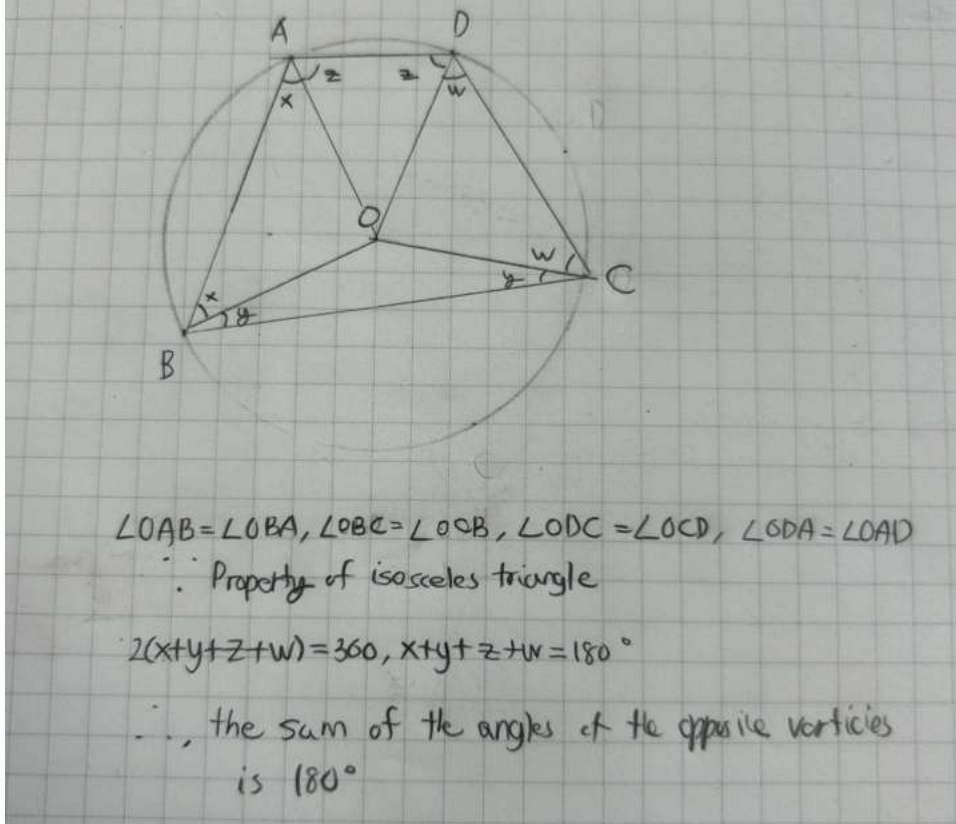 A D
z z
x w
O
w
y C
x y
B
∠OAB=∠OBA, ∠OBC=∠OCB, ∠ODC=∠OCD, ∠ODA=∠OAD
∵ Property of isosceles triangle
2(x+y+z+w)=360, x+y+z+w=180°
∴, the sum of the angles of the opposite verticies
is 180°